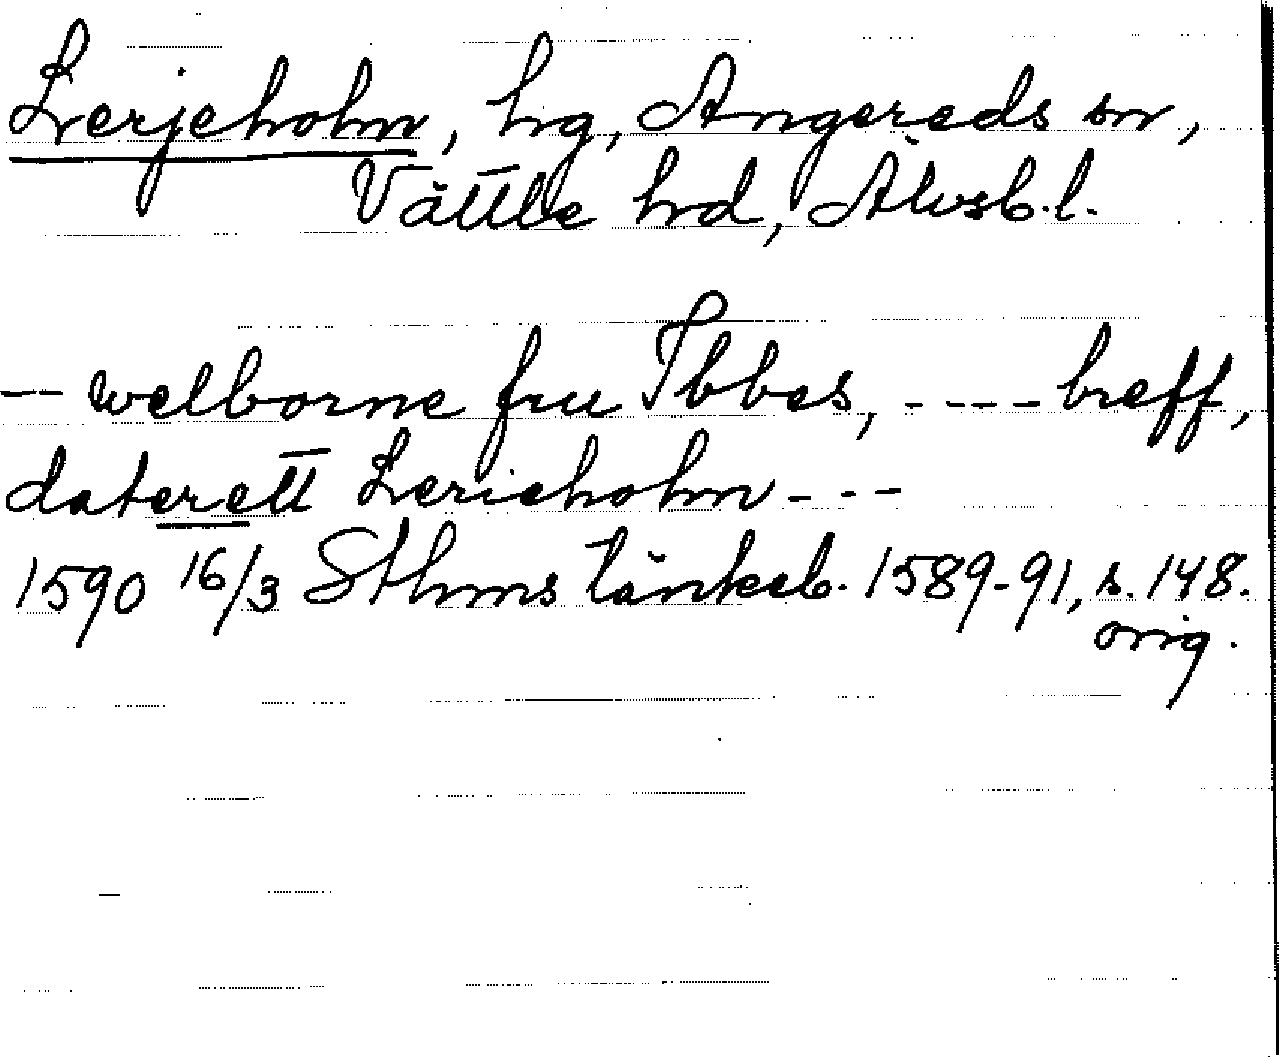 Lerjeholm, hg, Angereds sn,
Vättle hd, Älvsb. l.
— welborne fru Ibbes, - - - - breff,
daterett Lerieholm - - -
1590 16/3 Sthms tänkeb. 1589-91, s. 148.
orig.